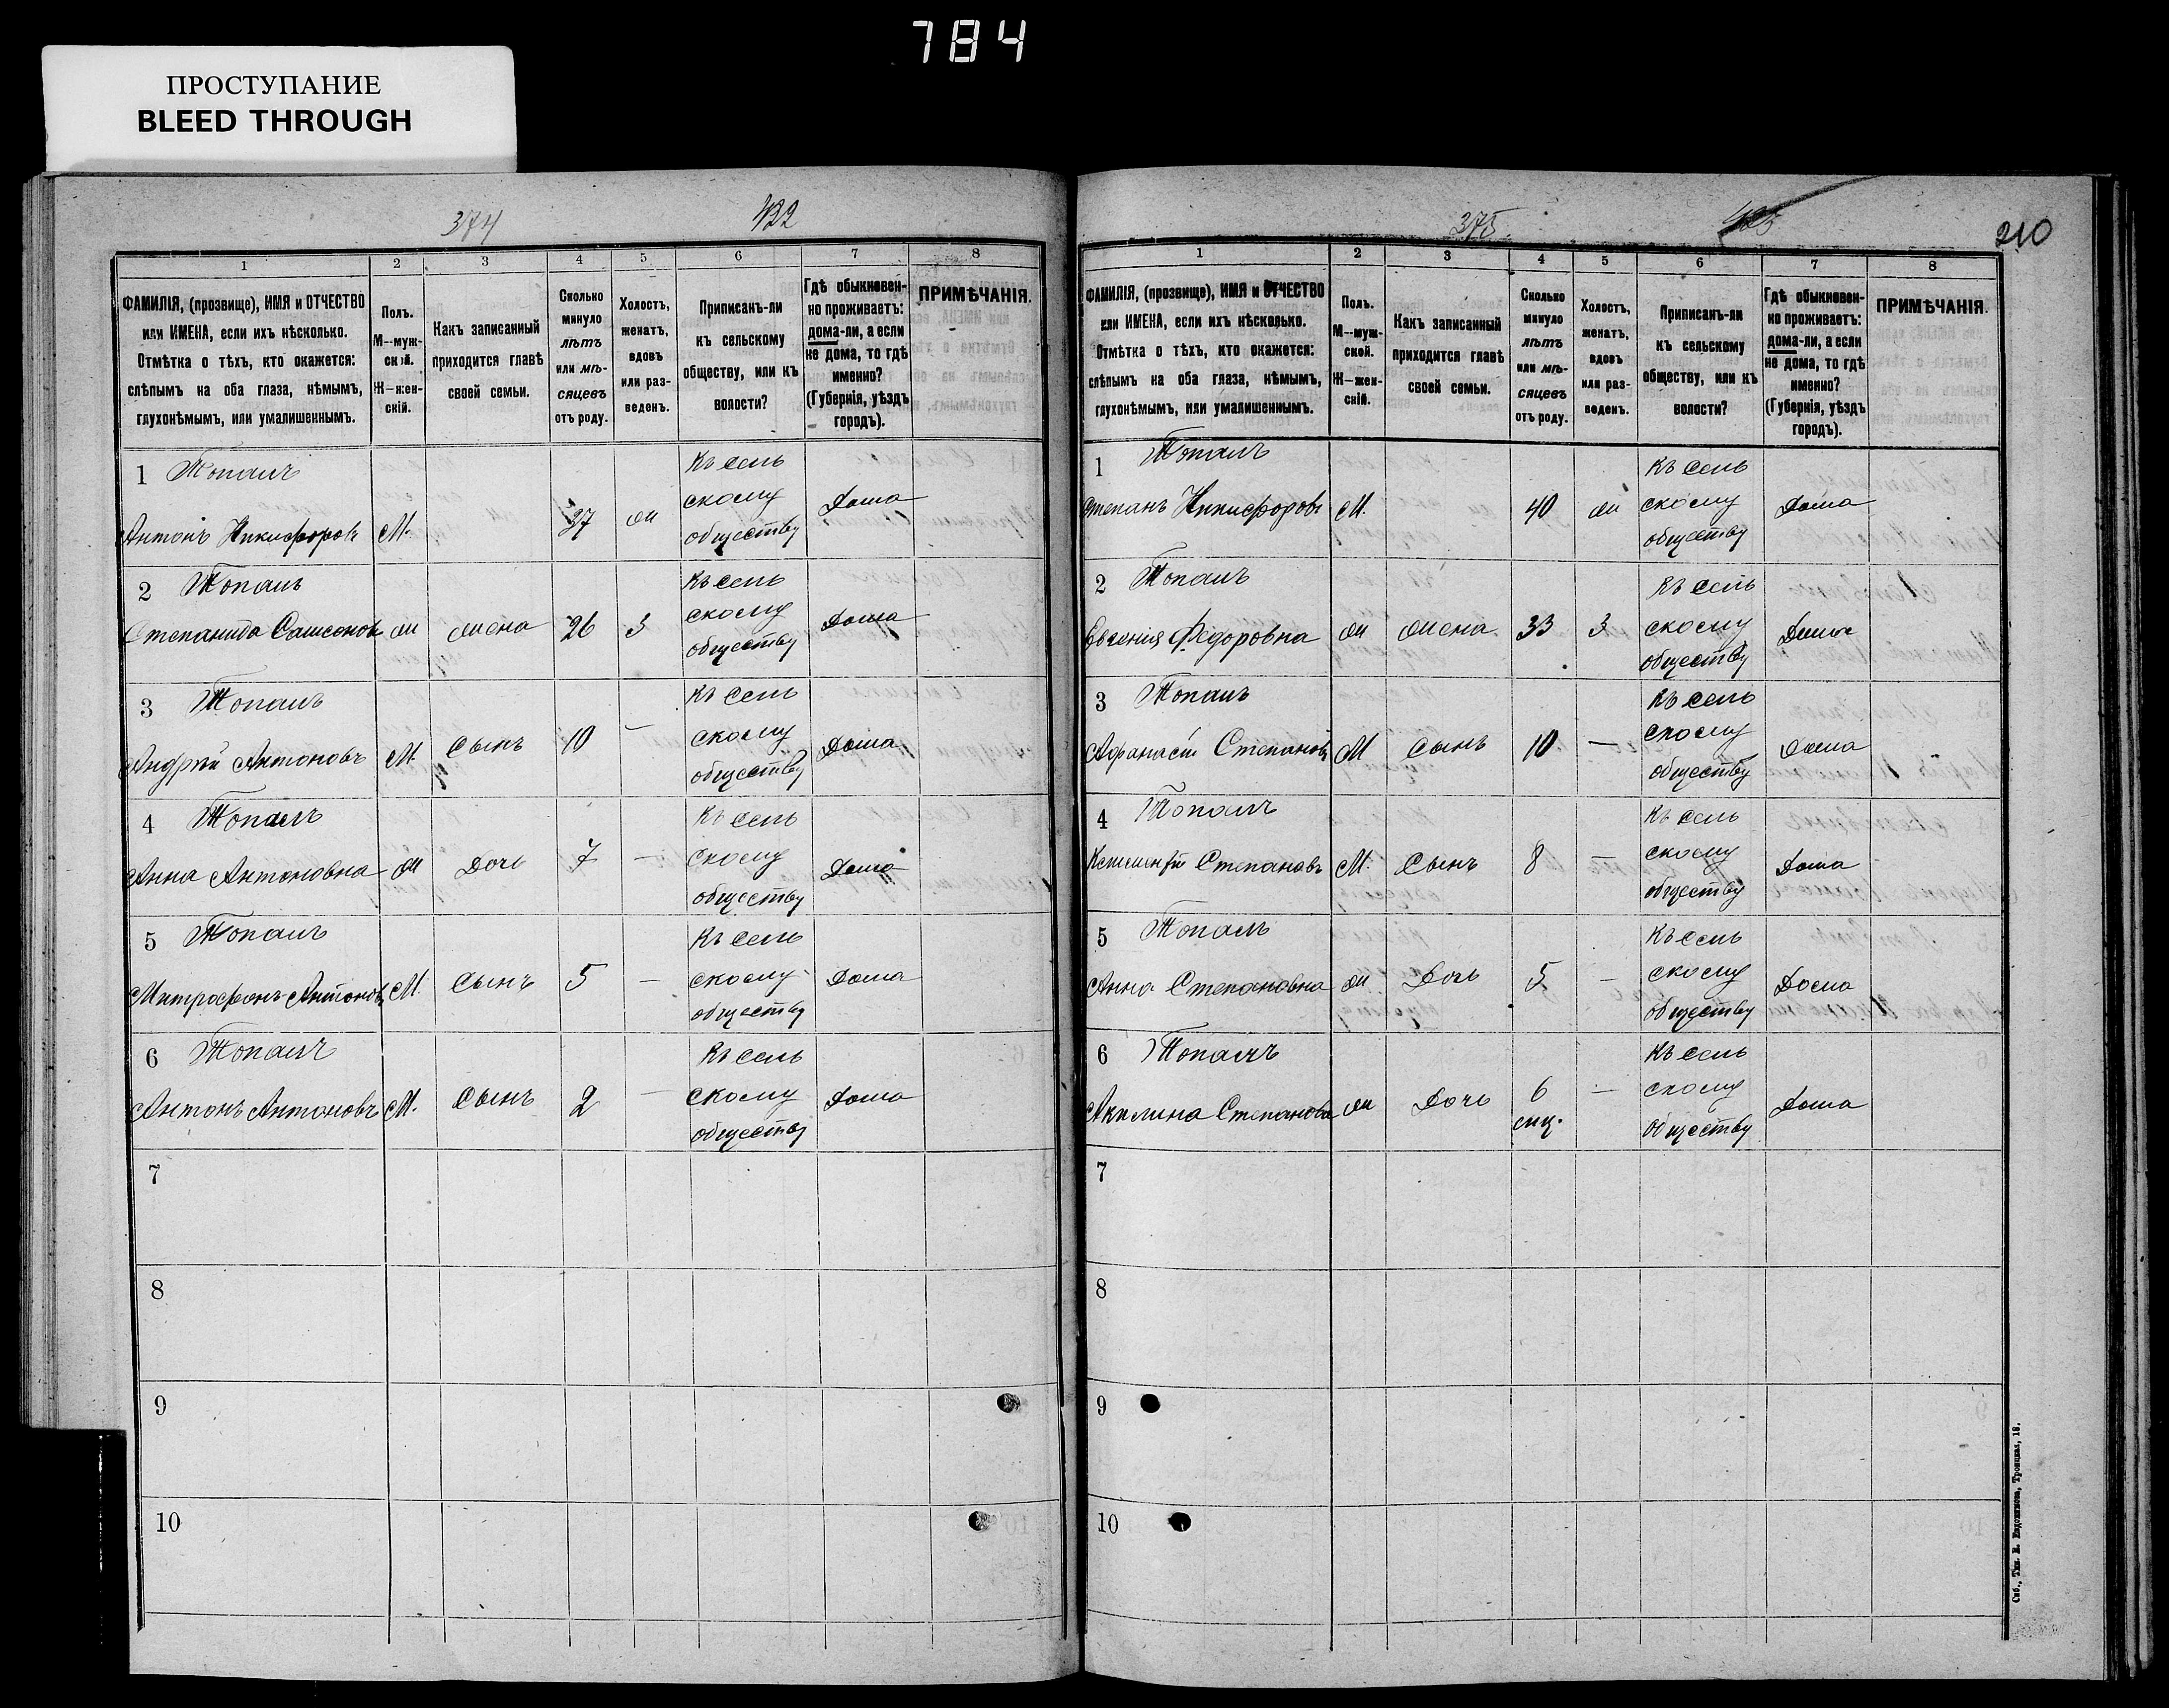 784
ПРОСТУПАНИЕ
BLEED THROUGH
374
432
1 2 3 4 5 6 7 8
ФАМИЛІЯ, (прозвище), ИМЯ и ОТЧЕСТВО
или ИМЕНА, если ихъ нѣсколько.
Отмѣтка о тѣхъ, кто окажется:
слѣпымъ на оба глаза, нѣмымъ,
глухонѣмымъ, или умалишеннымъ.
Полъ.
М—муж-
ской.
Ж—жен-
скій.
Какъ записанный
приходится главѣ
своей семьи.
Сколько
минуло
лѣтъ
или мѣ-
сяцевъ
отъ роду.
Холостъ,
женатъ,
вдовъ
или раз-
веденъ.
Приписанъ-ли
къ сельскому
обществу, или къ
волости?
Гдѣ обыкновен-
но проживаетъ:
дома-ли, а если
не дома, то гдѣ
именно?
(Губернія, уѣздъ
городъ).
ПРИМѢЧАНІЯ.
1 Топалъ
Антонъ Никифоровъ М. 37 ж
Къ сель
скому
обществу
Дома
2 Топалъ
Степанида Самсонов ж жена 26 З
Къ сель
скому
обществу
Дома
3 Топалъ
Андрей Антоновъ М. Сынъ 10 —
Къ сель
скому
обществу
Дома
4 Топалъ
Анна Антоновна ж Дочь 7 —
Къ сель
скому
обществу
Дома
5 Топалъ
Митрофанъ Антоновъ М. Сынъ 5 —
Къ сель
скому
обществу
Дома
6 Топалъ
Антонъ Антоновъ М. Сынъ 2 —
Къ сель
скому
обществу
Дома
7
8
9
10
375
210
1 2 3 4 5 6 7 8
ФАМИЛІЯ, (прозвище), ИМЯ и ОТЧЕСТВО
или ИМЕНА, если ихъ нѣсколько.
Отмѣтка о тѣхъ, кто окажется:
слѣпымъ на оба глаза, нѣмымъ,
глухонѣмымъ, или умалишеннымъ.
Полъ.
М—муж-
ской.
Ж—жен-
скій.
Какъ записанный
приходится главѣ
своей семьи.
Сколько
минуло
лѣтъ
или мѣ-
сяцевъ
отъ роду.
Холостъ,
женатъ,
вдовъ
или раз-
веденъ.
Приписанъ-ли
къ сельскому
обществу, или къ
волости?
Гдѣ обыкновен-
но проживаетъ:
дома-ли, а если
не дома, то гдѣ
именно?
(Губернія, уѣздъ
городъ).
ПРИМѢЧАНІЯ.
1 Топалъ
Степанъ Никифоровъ М. 40 ж
Къ сель
скому
обществу
Дома
2 Топалъ
Евгенія Федоровна ж жена 33 З
Къ сель
скому
обществу
Дома
3 Топалъ
Афанасій Степановъ М Сынъ 10 —
Къ сель
скому
обществу
Дома
4 Топалъ
Степановъ М. Сынъ 8 —
Къ сель
скому
обществу
Дома
5 Топалъ
Анна Степановна ж Дочь 5 —
Къ сель
скому
обществу
Дома
6 Топалъ
Акилина Степанова ж Дочь 6 —
мц.
Къ сель
скому
обществу
Дома
7
8
9
10
Спб., Тип. Е. Евдокимова, Троицкая, 18.